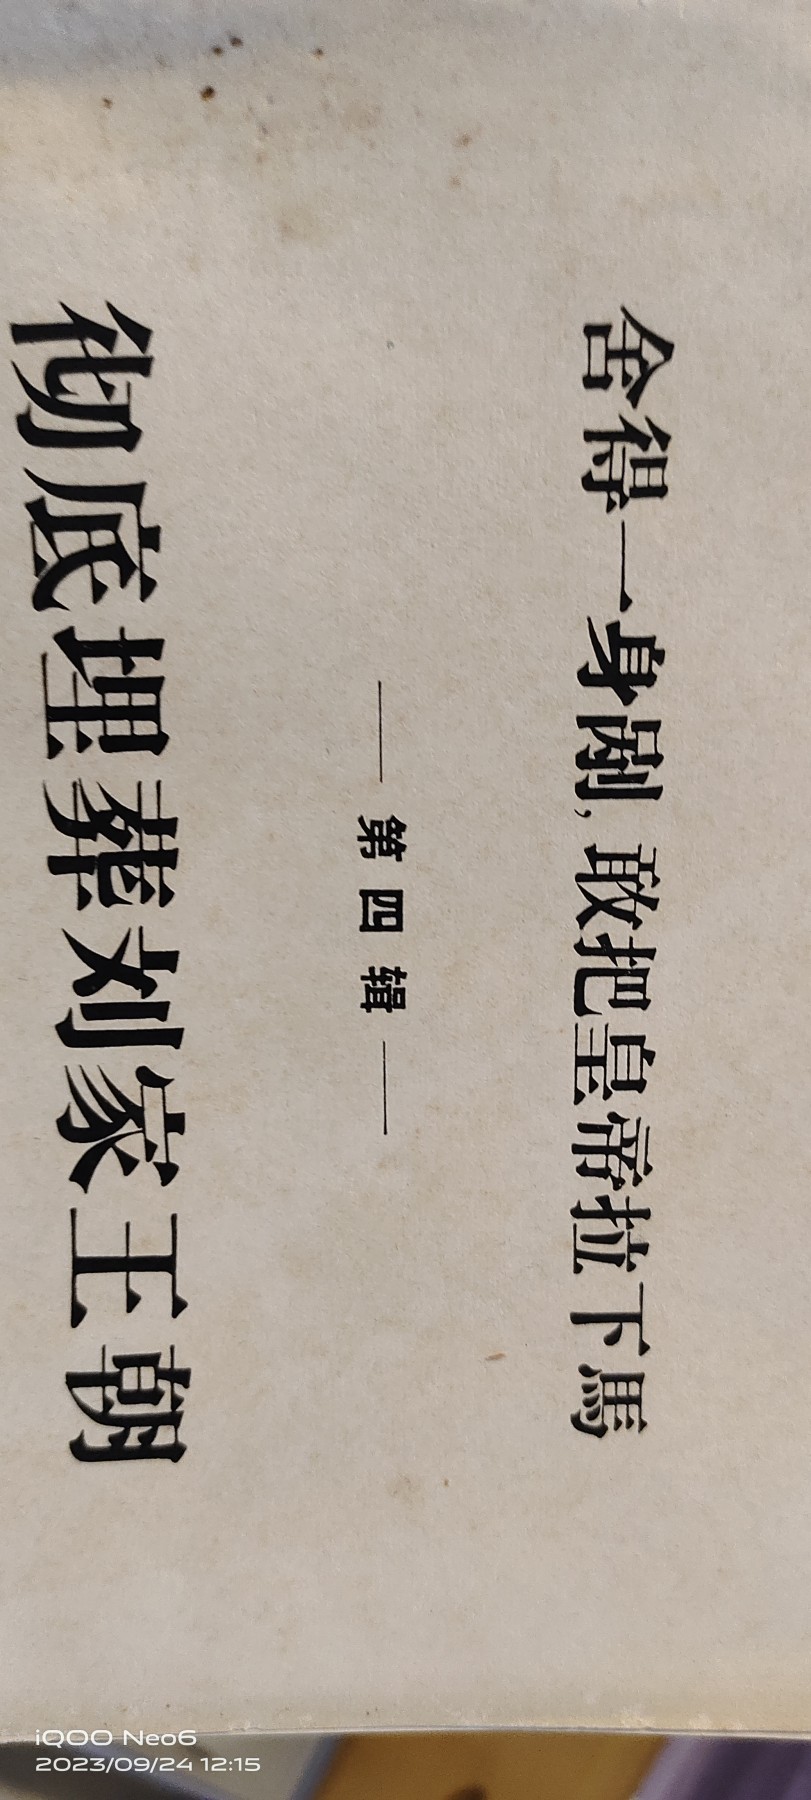 舍得一身剮，敢把皇帝拉下馬
——第四辑——
彻底埋葬刘家王朝
iQOO Neo6
2023/09/24 12:15